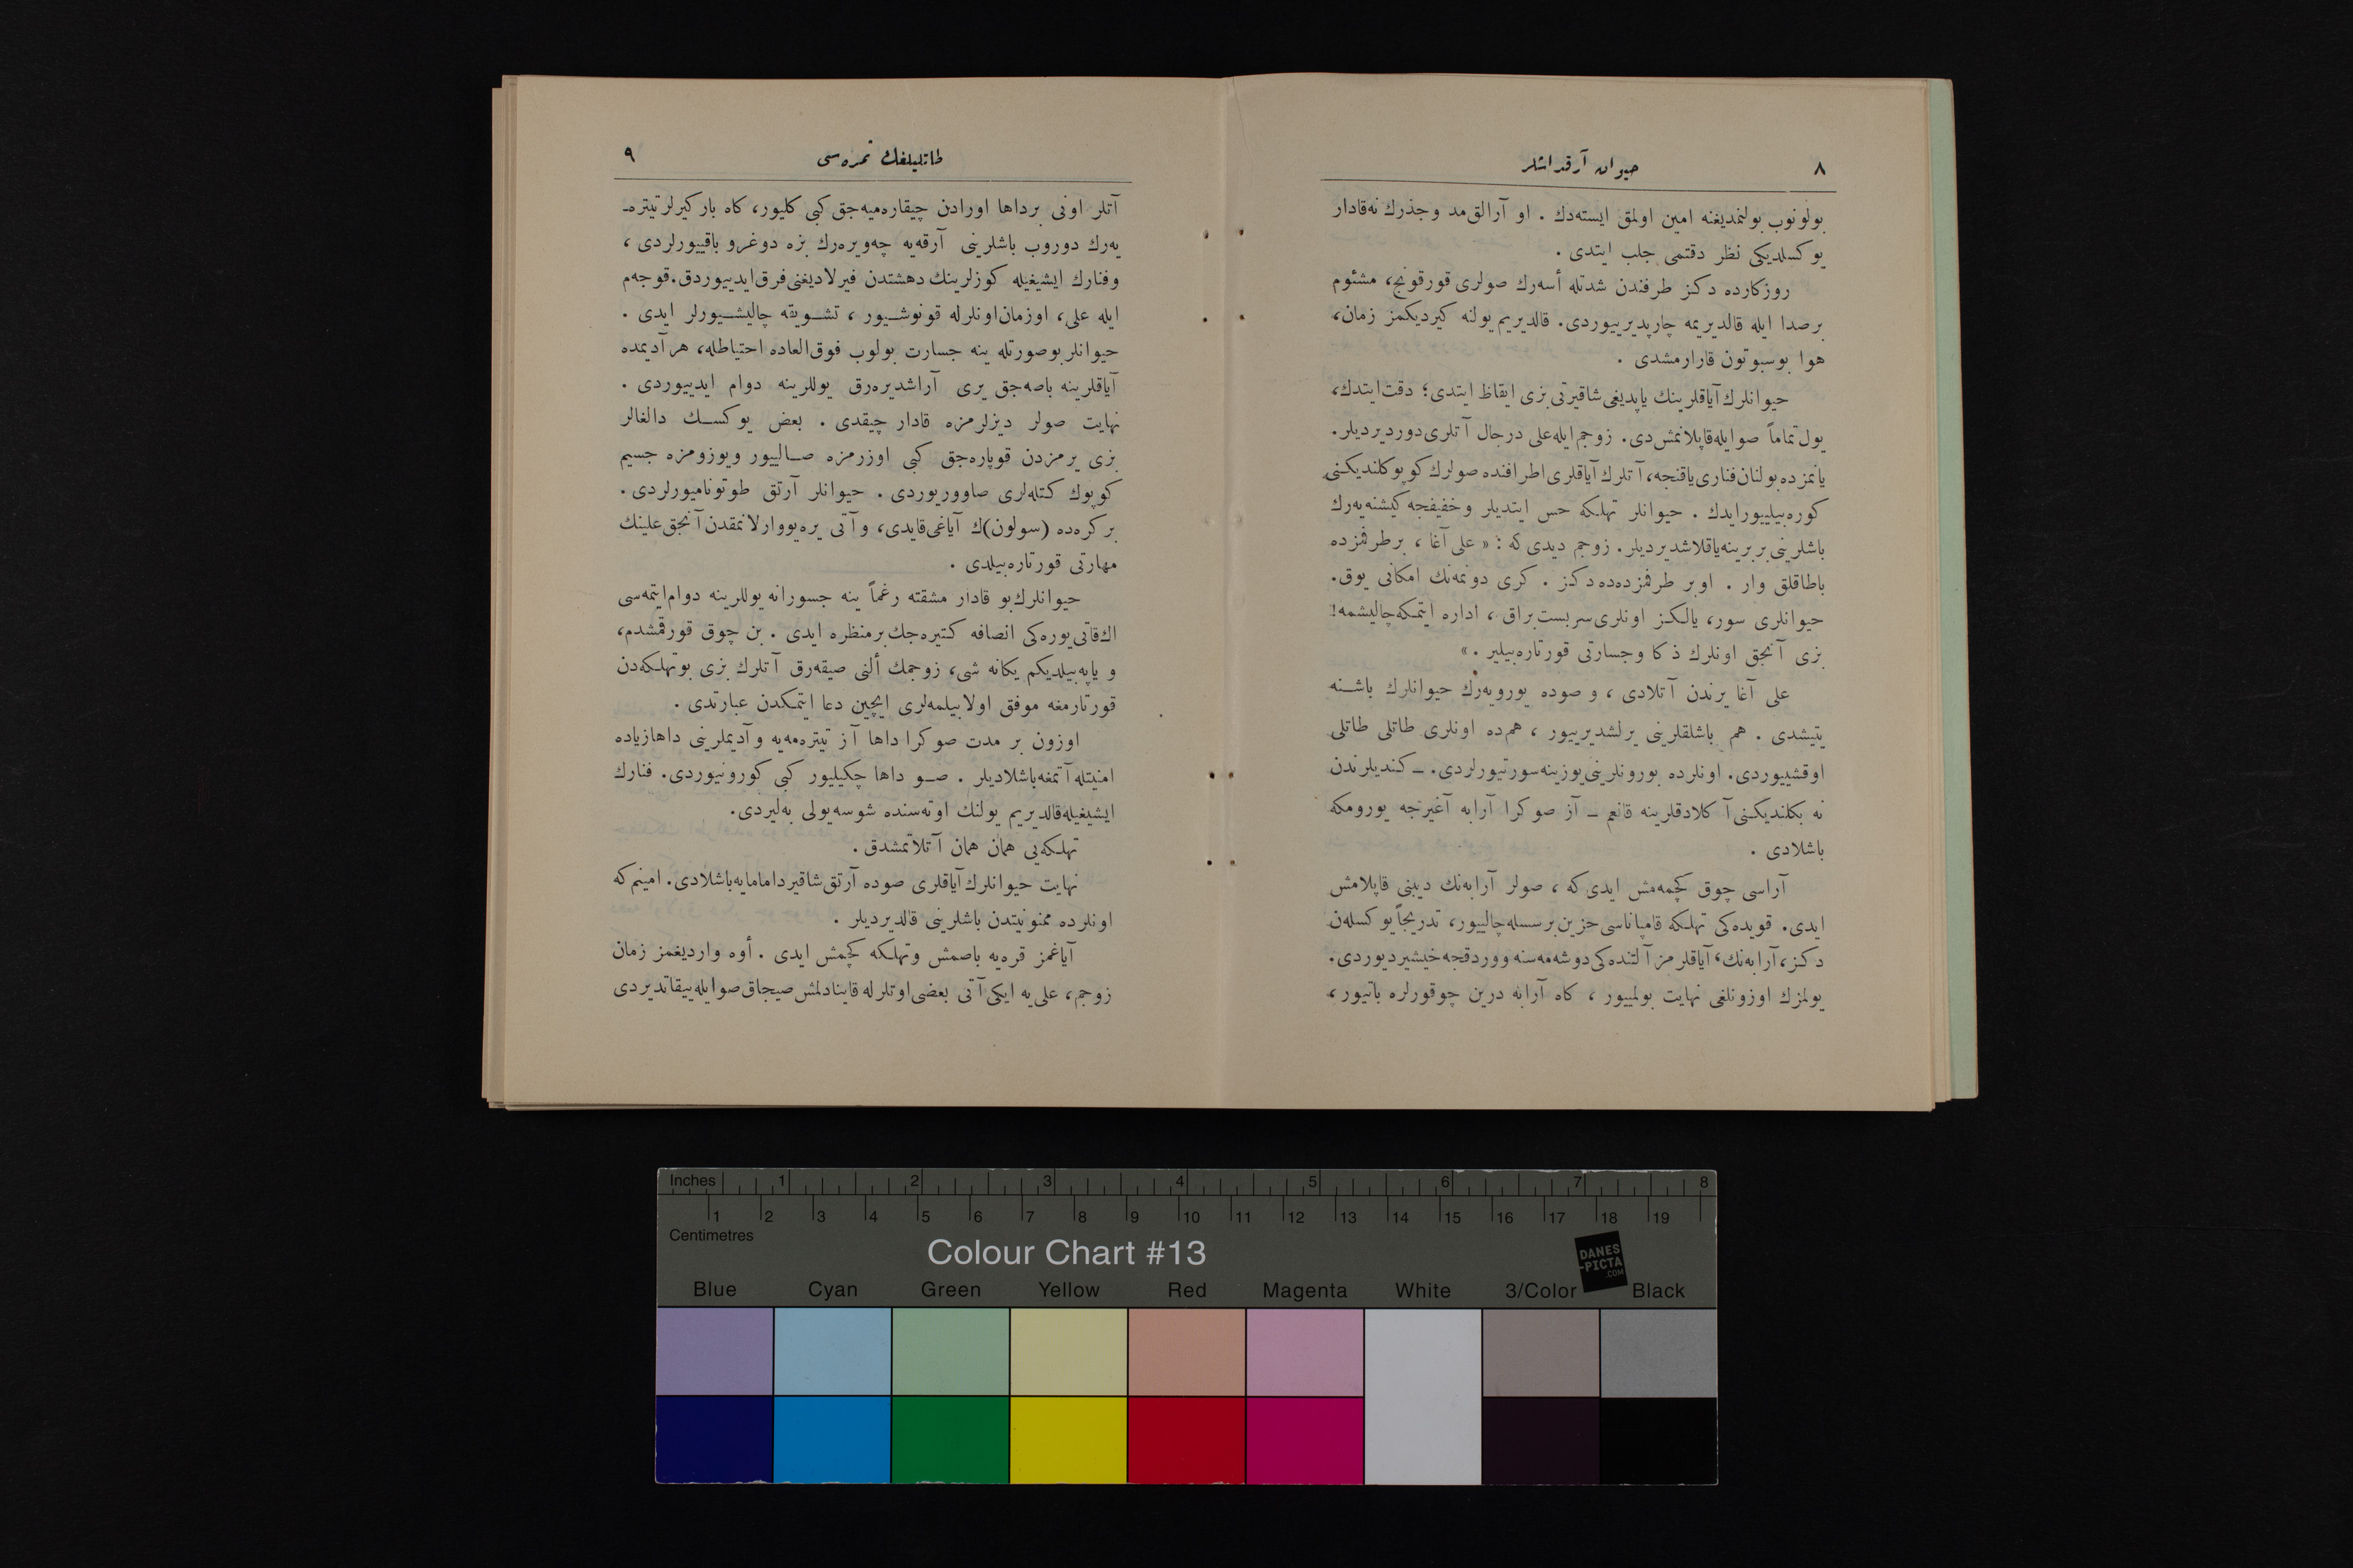 ٨
حیوان آرقداشلر
بولونوب بولنمدیغنه امین اولمق ایسته‌دك . او آرالق مد وجذرك نه‌قادار
یوكسلدیكی نظر دقتمی جلب ایتدی .
روزكارده دكز طرفندن شدتله أسه‌رك صولری قورقونج، مشئوم
برصدا ایله قالدیریمه چارپدیرییوردی. قالدیریم یولنه كیردیكمز زمان،
هوا بوسبوتون قارارمشدی .
حیوانلرك آیاقلرینك یاپدیغی شاقیرتی بزی ایقاظ ایتدی؛ دقت ایتدك،
یول تماماً صوایله‌قاپلانمش‌دی. زوجم ایله‌علی درحال آتلری دوردیردیلر.
یانمزده بولنان فناری یاقنجه، آتلرك آیاقلری اطرافنده صولرك كوپوكلندیكنی
كوره‌بیلییورایدك . حیوانلر تهلكه حس ایتدیلر وخفیفجه كیشنه‌یه‌رك
باشلرینی بربرینه‌یاقلاشدیردیلر. زوجم دیدی كه : « علی آغا ، برطرفمزده
باطاقلق وار . اوبر طرفمزده‌ده دكز . كری دونمه‌نك امكانی یوق.
حیوانلری سور، یالكز اونلری سربست براق ، اداره ایتمكه‌چالیشمه!
بزی آنجق اونلرك ذكا وجسارتی قورتاره‌بیلیر . »
علی آغا یرندن آتلادی ، و صوده یورویه‌رك حیوانلرك باشنه
یتیشدی . هم باشلقلرینی یرلشدیرییور ، هم‌ده اونلری طاتلی طاتلی
اوقشییوردی. اونلرده بورونلرینی یوزینه‌سورتیورلردی. ــ كندیلرندن
نه بكلندیكنی آكلادقلرینه قانعم ــ آز صوكرا آرابه آغیرجه یورومكه
باشلادی .
آراسی چوق كچمه‌مش ایدی كه ، صولر آرابه‌نك دیبنی قاپلامش
ایدی. قویده‌كی تهلكه قامپاناسی حزین برسسله‌چالییور، تدریجاً یوكسله‌ن
دكز، آرابه‌نك، آیاقلرمز آلتنده‌كی دوشه‌مه‌سنه ووردقجه خیشیردیوردی.
یولمزك اوزونلغی نهایت بولمییور ، كاه آرابه درین چوقورلره باتیور،
٩
طاتلیلغك ثمره‌سی
آتلر اونی برداها اورادن چیقاره‌میه‌جق كبی كلیور، كاه باركیرلر تیتره‌ـ
یه‌رك دوروب باشلرینی آرقه‌یه چه‌ویره‌رك بزه دوغرو باقییورلردی ،
وفنارك ایشیغیله كوزلرینك دهشتدن فیرلادیغنی فرق ایدییوردق. قوجه‌م
ایله علی، اوزمان اونلرله قونوشیور ، تشویقه چالیشیورلر ایدی .
حیوانلر بوصورتله ینه جسارت بولوب فوق‌العاده احتیاطله، هر آدیمده
آیاقلرینه باصه‌جق یری آراشدیره‌رق یوللرینه دوام ایدییوردی .
نهایت صولر دیزلرمزه قادار چیقدی . بعض یوكسك دالغالر
بزی یرمزدن قوپاره‌جق كبی اوزرمزه صالییور ویوزومزه جسیم
كوپوك كتله‌لری صاووریوردی . حیوانلر آرتق طوتونامیورلردی.
بركره‌ده (سولون)ك آیاغی‌قایدی، و آتی یره‌یووارلانمقدن آنجق علینك
مهارتی قورتاره‌بیلدی .
حیوانلرك‌بو قادار مشقته رغماً ینه جسورانه یوللرینه دوام‌ایتمه‌سی
اك‌قاتی یوره‌كی انصافه كتیره‌جك برمنظره ایدی . بن چوق قورقمشدم،
و یاپه‌بیلدیكم یكانه شی، زوجمك ألنی صیقه‌رق آتلرك بزی بوتهلكه‌دن
قورتارمغه موفق اولابیلمه‌لری ایچین دعا ایتمكدن عبارتدی .
اوزون بر مدت صوكرا داها آز تیتره‌مه‌یه و آدیملرینی داهازیاده
امنیتله آتمغه‌باشلادیلر . صو داها چكیلیور كبی كورونیوردی. فنارك
ایشیغیله‌قالدیریم یولنك اوته‌سنده شوسه‌یولی به‌لیردی.
تهلكه‌یی همان همان آتلاتمشدق .
نهایت حیوانلرك آیاقلری صوده آرتق شاقیرداماما‌یه‌باشلادی. امینم كه
اونلرده ممنونیتدن باشلرینی قالدیردیلر .
آیاغمز قره‌یه باصمش وتهلكه كچمش ایدی . أوه واردیغمز زمان
زوجم، علی‌یه ایكی آتی بعضی اوتلرله قاینادلمش صیجاق صوایله ییقاتدیردی
Inches 1 2 3 4 5 6 7 8
1 2 3 4 5 6 7 8 9 10 11 12 13 14 15 16 17 18 19
Centimetres
Colour Chart #13
DANES
-PICTA
.COM
Blue Cyan Green Yellow Red Magenta White 3/Color Black